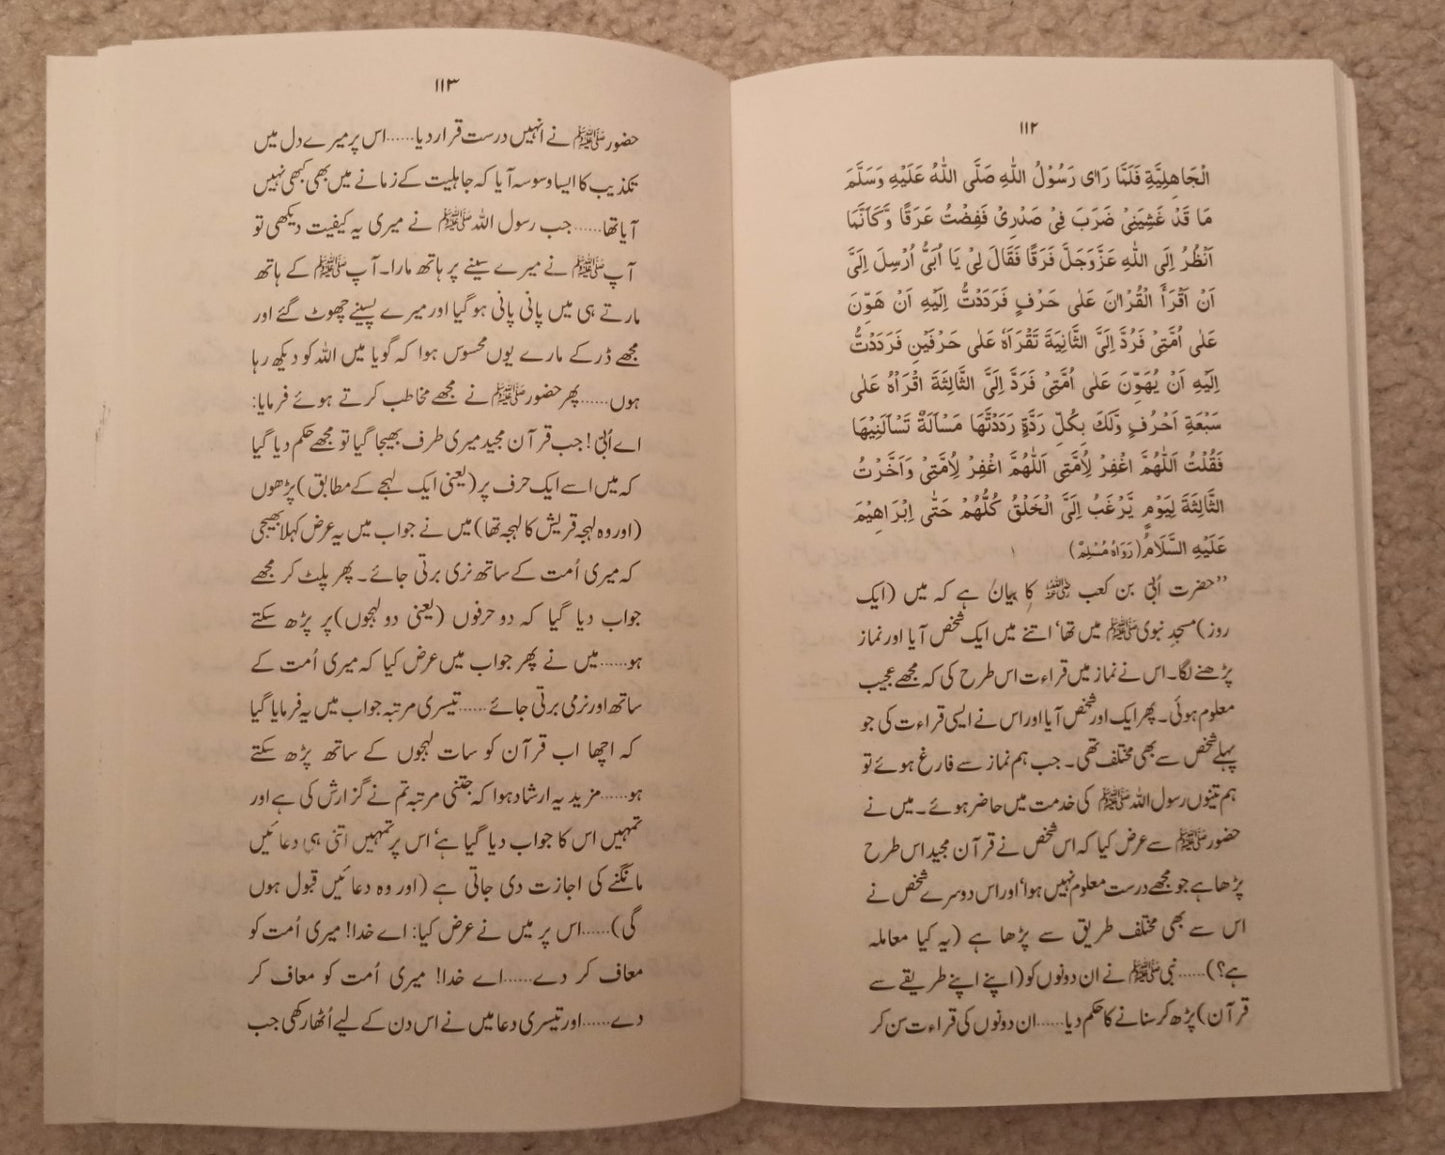 ۱۱۲
الْجَاهِلِيَّةِ فَلَمَّا رَاٰی رَسُوْلُ اللّٰهِ صَلَّی اللّٰهُ عَلَيْهِ وَسَلَّمَ
مَا قَدْ غَشِيَنِیْ ضَرَبَ فِیْ صَدْرِیْ فَفِضْتُ عَرَقًا وَّکَاَنَّمَا
اَنْظُرُ اِلَی اللّٰهِ عَزَّوَجَلَّ فَرَقًا فَقَالَ لِیْ يَا اُبَیُّ اُرْسِلَ اِلَیَّ
اَنْ اَقْرَأَ الْقُرْاٰنَ عَلٰی حَرْفٍ فَرَدَدْتُّ اِلَيْهِ اَنْ هَوِّنْ
عَلٰی اُمَّتِیْ فَرُدَّ اِلَیَّ الثَّانِيَةَ تَقْرَاَهُ عَلٰی حَرْفَيْنِ فَرَدَدْتُّ
اِلَيْهِ اَنْ يُهَوِّنَ عَلٰی اُمَّتِیْ فَرَدَّ اِلَیَّ الثَّالِثَةَ اقْرَاْهُ عَلٰی
سَبْعَةِ اَحْرُفٍ وَّلَكَ بِكُلِّ رَدَّةٍ رَدَدْتُّهَا مَسْاَلَةٌ تَسْاَلَنِيْهَا
فَقُلْتُ اَللّٰهُمَّ اغْفِرْ لِاُمَّتِیْ اَللّٰهُمَّ اغْفِرْ لِاُمَّتِیْ وَاَخَّرْتُ
الثَّالِثَةَ لِيَوْمٍ يَّرْغَبُ اِلَیَّ الْخَلْقُ كُلُّهُمْ حَتّٰی اِبْرَاهِيْمَ
عَلَيْهِ السَّلَامُ (رَوَاهُ مُسْلِمٌ) ۱
”حضرت اُبیّ بن کعب ﷜ کا بیان ہے کہ میں (ایک
روز) مسجدِ نبوی ﷺ میں تھا‘ اتنے میں ایک شخص آیا اور نماز
پڑھنے لگا۔ اس نے نماز میں قراءت اس طرح کی کہ مجھے عجیب
معلوم ہوئی۔ پھر ایک اور شخص آیا اور اس نے ایسی قراءت کی جو
پہلے شخص سے بھی مختلف تھی۔ جب ہم نماز سے فارغ ہوئے تو
ہم تینوں رسول اللہ ﷺ کی خدمت میں حاضر ہوئے۔ میں نے
حضور ﷺ سے عرض کیا کہ اس شخص نے قرآن مجید اس طرح
پڑھا ہے جو مجھے درست معلوم نہیں ہوا‘ اور اس دوسرے شخص نے
اس سے بھی مختلف طریق سے پڑھا ہے (یہ کیا معاملہ
ہے؟)...... نبی ﷺ نے ان دونوں کو (اپنے اپنے طریقے سے
قرآن) پڑھ کر سنانے کا حکم دیا...... ان دونوں کی قراءت سن کر
۱۱۳
حضور ﷺ نے انہیں درست قرار دیا...... اس پر میرے دل میں
تکذیب کا ایسا وسوسہ آیا کہ جاہلیت کے زمانے میں بھی کبھی نہیں
آیا تھا...... جب رسول اللہ ﷺ نے میری یہ کیفیت دیکھی تو
آپ ﷺ نے میرے سینے پر ہاتھ مارا۔ آپ ﷺ کے ہاتھ
مارتے ہی میں پانی پانی ہو گیا اور میرے پسینے چھوٹ گئے اور
مجھے ڈر کے مارے یوں محسوس ہوا کہ گویا میں اللہ کو دیکھ رہا
ہوں...... پھر حضور ﷺ نے مجھے مخاطب کرتے ہوئے فرمایا:
اے اُبیّ! جب قرآن مجید میری طرف بھیجا گیا تو مجھے حکم دیا گیا
کہ میں اسے ایک حرف پر (یعنی ایک لہجے کے مطابق) پڑھوں
(اور وہ لہجہ قریش کا لہجہ تھا) میں نے جواب میں یہ عرض کہلا بھیجی
کہ میری اُمت کے ساتھ نری برتی جائے۔ پھر پلٹ کر مجھے
جواب دیا گیا کہ دو حرفوں (یعنی دو لہجوں) پر پڑھ سکتے
ہو...... میں نے پھر جواب میں عرض کیا کہ میری اُمت کے
ساتھ اور نرمی برتی جائے...... تیسری مرتبہ جواب میں یہ فرمایا گیا
کہ اچھا اب قرآن کو سات لہجوں کے ساتھ پڑھ سکتے
ہو...... مزید یہ ارشاد ہوا کہ جتنی مرتبہ تم نے گزارش کی ہے اور
تمہیں اس کا جواب دیا گیا ہے‘ اس پر تمہیں اتنی ہی دعائیں
مانگنے کی اجازت دی جاتی ہے (اور وہ دعائیں قبول ہوں
گی)...... اس پر میں نے عرض کیا: اے خدا! میری اُمت کو
معاف کر دے...... اے خدا! میری اُمت کو معاف کر
دے...... اور تیسری دعا میں نے اس دن کے لیے اُٹھا رکھی جب